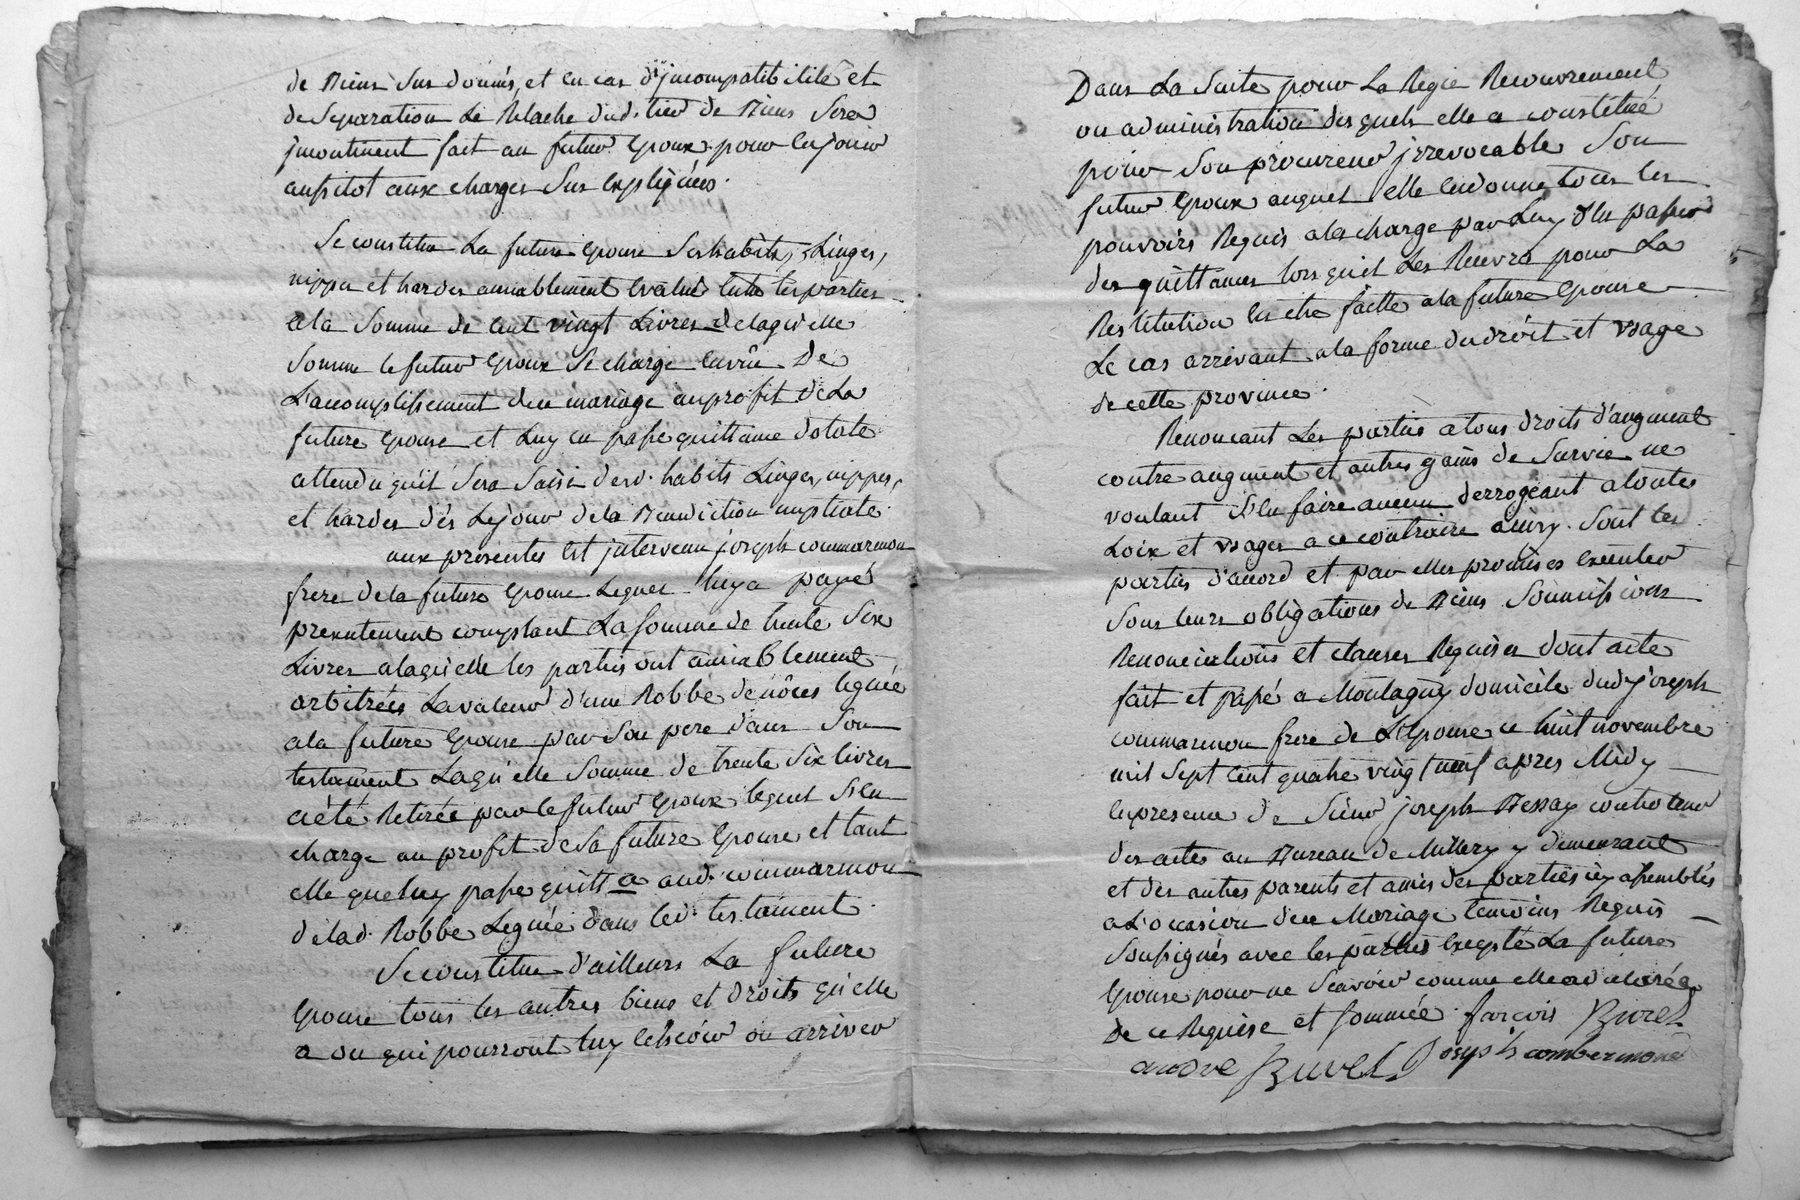 de Biens Sus donnés, et en cas d'jncompatibilité et
de Separation Le Relache dud. tier de Biens Sera
jncontinent fait au futur Epoux pour en jouir
aussitot aux charges Sus Expliquées.
Se constitue La future Epouse Ses habits, Linges,
nippes et hardes amiablement Evalué Entre les parties
ala Somme de Cent vingt Livres delaquelle
Somme le futur Epoux Se charge En vûe De
L'accomplissement du mariage au profit de La
future Epouse et Luy en passe quittance dotale
attendu qu'il Sera Saisi desd. habits Linges, nippes,
et hardes dés Le jour dela Benediction nuptiale.
aux presentes Est jntervenu joseph commarmon
frere dela future Epouse Lequel luy a payé
presentement comptant La Somme de trente Six
Livres alaquelle les parties ont amiablement
arbitrées La valeur d'une Robbe de nôces leguée
ala future Epouse par Son pere dans Son
testament Laquelle Somme de trente Six livres
a été Retirée par le futur Epoux lequel S'en
charge au profit de Sa future Epouse et tant
elle que luy passe quitt.ce aud. commarmon
delad. Robbe Leguée dans led. testament.
Se constitue d'ailleurs La future
Epouse tous les autres biens et droits qu'elle
a ou qui pourront luy Echeoir ou arriver
Dans La Suite pour La Regie Recouvrement
ou administration desquels elle a constitué
pour Son procureur jrrevocable Son
futur Epoux auquel elle En donne tous les
pouvoirs Requis ala charge par Luy d'En passer
des quittances lors qu'il Les Recevra pour La
Restitution En etre faitte ala future Epouse
Le cas arrivant ala forme du droit et usage
de cette province.
Renoncant Les parties a tous droits d'augment
contre augment et autres gains de Survie ne
voulant S'En faire aucun derrogeant a toutes
Loix et usages a ce contraire ainsy Sont Les
parties d'acord et par elles promises executer
Sous leurs obligations de Biens Soumissions
Renonciations et clauses Requises dont acte
fait et passé a Montagny domicile dud. joseph
commarmon frere de L'Epouse ce huit novembre
mil Sept Cent quatre vingt neuf apres Midy
En presence de Sieur joseph Bessay controleur
des actes au Bureau de Millery y demeurant
et des autres parents et amis des parties icy assemblés
a L'occasion du Mariage temoins Requis
Soussignés avec les parties Excepté La future
Epouse pour ne Sçavoir comme elle a déclarée
De ce Requise et Sommée. farcois Burel
andre Burel Joseph combermond